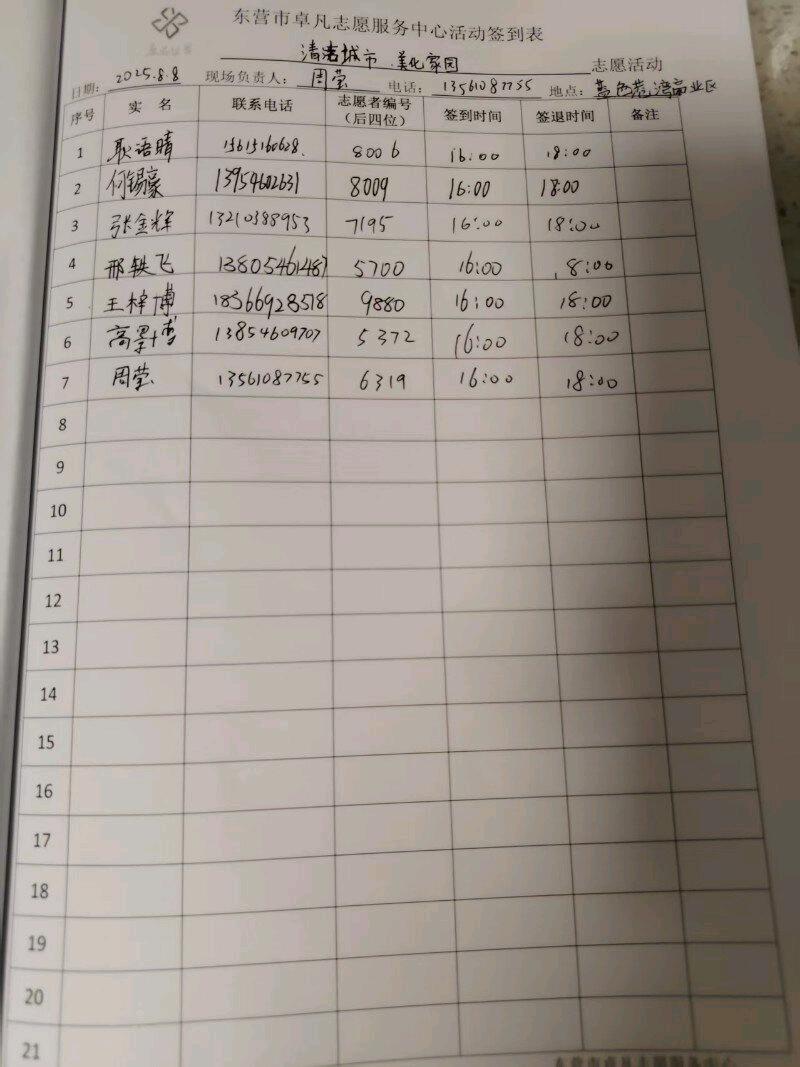 东营市卓凡志愿服务中心活动签到表
清洁城市 美化家园 志愿活动
日期: 2025.8.8 现场负责人: 周莹 电话: 13561087755 地点: 蓝色港湾商业区
序号 实 名 联系电话 志愿者编号(后四位) 签到时间 签退时间 备注
1 耿语晴 15615160628 8006 16:00 18:00
2 何锡豪 13954602631 8009 16:00 18:00
3 张金辉 13210388953 7195 16:00 18:00
4 邢轶飞 13805461487 5700 16:00 18:00
5 王梓博 18366928518 9880 16:00 18:00
6 高 13854609707 5372 16:00 18:00
7 周莹 13561087755 6319 16:00 18:00
8
9
10
11
12
13
14
15
16
17
18
19
20
21
东营市卓凡志愿服务中心